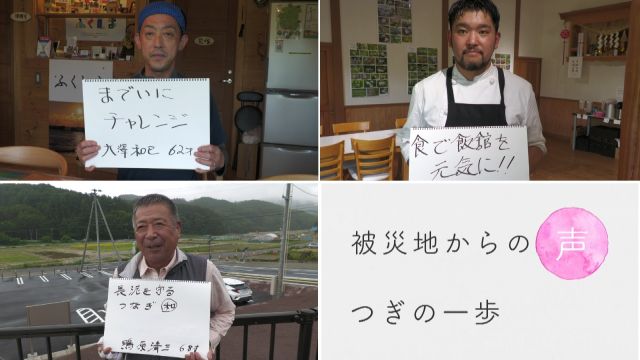 までいに
チャレンジ
大澤和巳 62才
食で飯館を
元気に!!
長泥を守る
つなぎ 和
鴫原清三 68才
被災地からの声
つぎの一歩